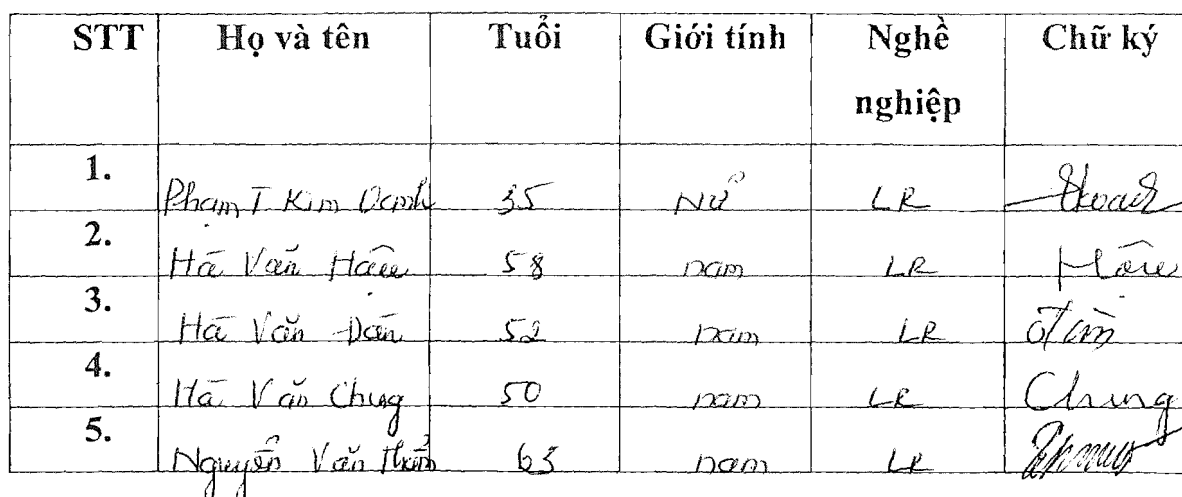 STT Họ và tên Tuổi Giới tính Nghề nghiệp Chữ ký
1. Phạm T. Kim Oanh 35 Nữ LR
2. Hà Văn Hậu 58 nam LR Hậu
3. Hà Văn Dân 52 nam LR
4. Hà Văn Chung 50 nam LR Chung
5. Nguyễn Văn 63 nam LR